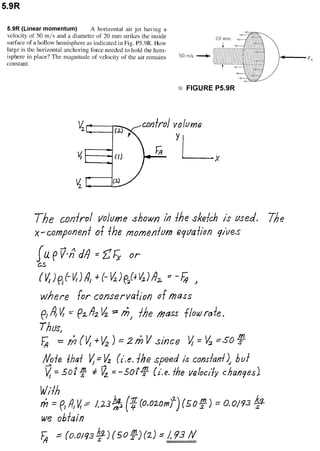 5.9R
5.9R (Linear momentum) A horizontal air jet having a
velocity of 50 m/s and a diameter of 20 mm strikes the inside
surface of a hollow hemisphere as indicated in Fig. P5.9R. How
large is the horizontal anchoring force needed to hold the hem-
isphere in place? The magnitude of velocity of the air remains
constant.
20 mm
50 m/s
F_A
FIGURE P5.9R
control volume
V₂ (2)
V₁ (1) F_A
V₂ (2)
y
x
The control volume shown in the sketch is used. The
x-component of the momentum equation gives
∫ u ρ V⃗·n̂ dA = ΣFₓ or
cs
(V₁)ρ₁(-V₁)A₁ + (-V₂)ρ₂(+V₂)A₂ = -F_A ,
where for conservation of mass
ρ₁A₁V₁ = ρ₂A₂V₂ = ṁ, the mass flowrate.
Thus,
F_A = ṁ(V₁+V₂) = 2ṁV since V₁=V₂=50 m/s
Note that V₁=V₂ (i.e. the speed is constant), but
V⃗₁ = 50 î m/s ≠ V⃗₂ = -50 î m/s (i.e. the velocity changes).
With
ṁ = ρ₁A₁V₁ = 1.23 kg/m³ (π/4 (0.020m)²)(50 m/s) = 0.0193 kg/s
we obtain
F_A = (0.0193 kg/s)(50 m/s)(2) = 1.93 N